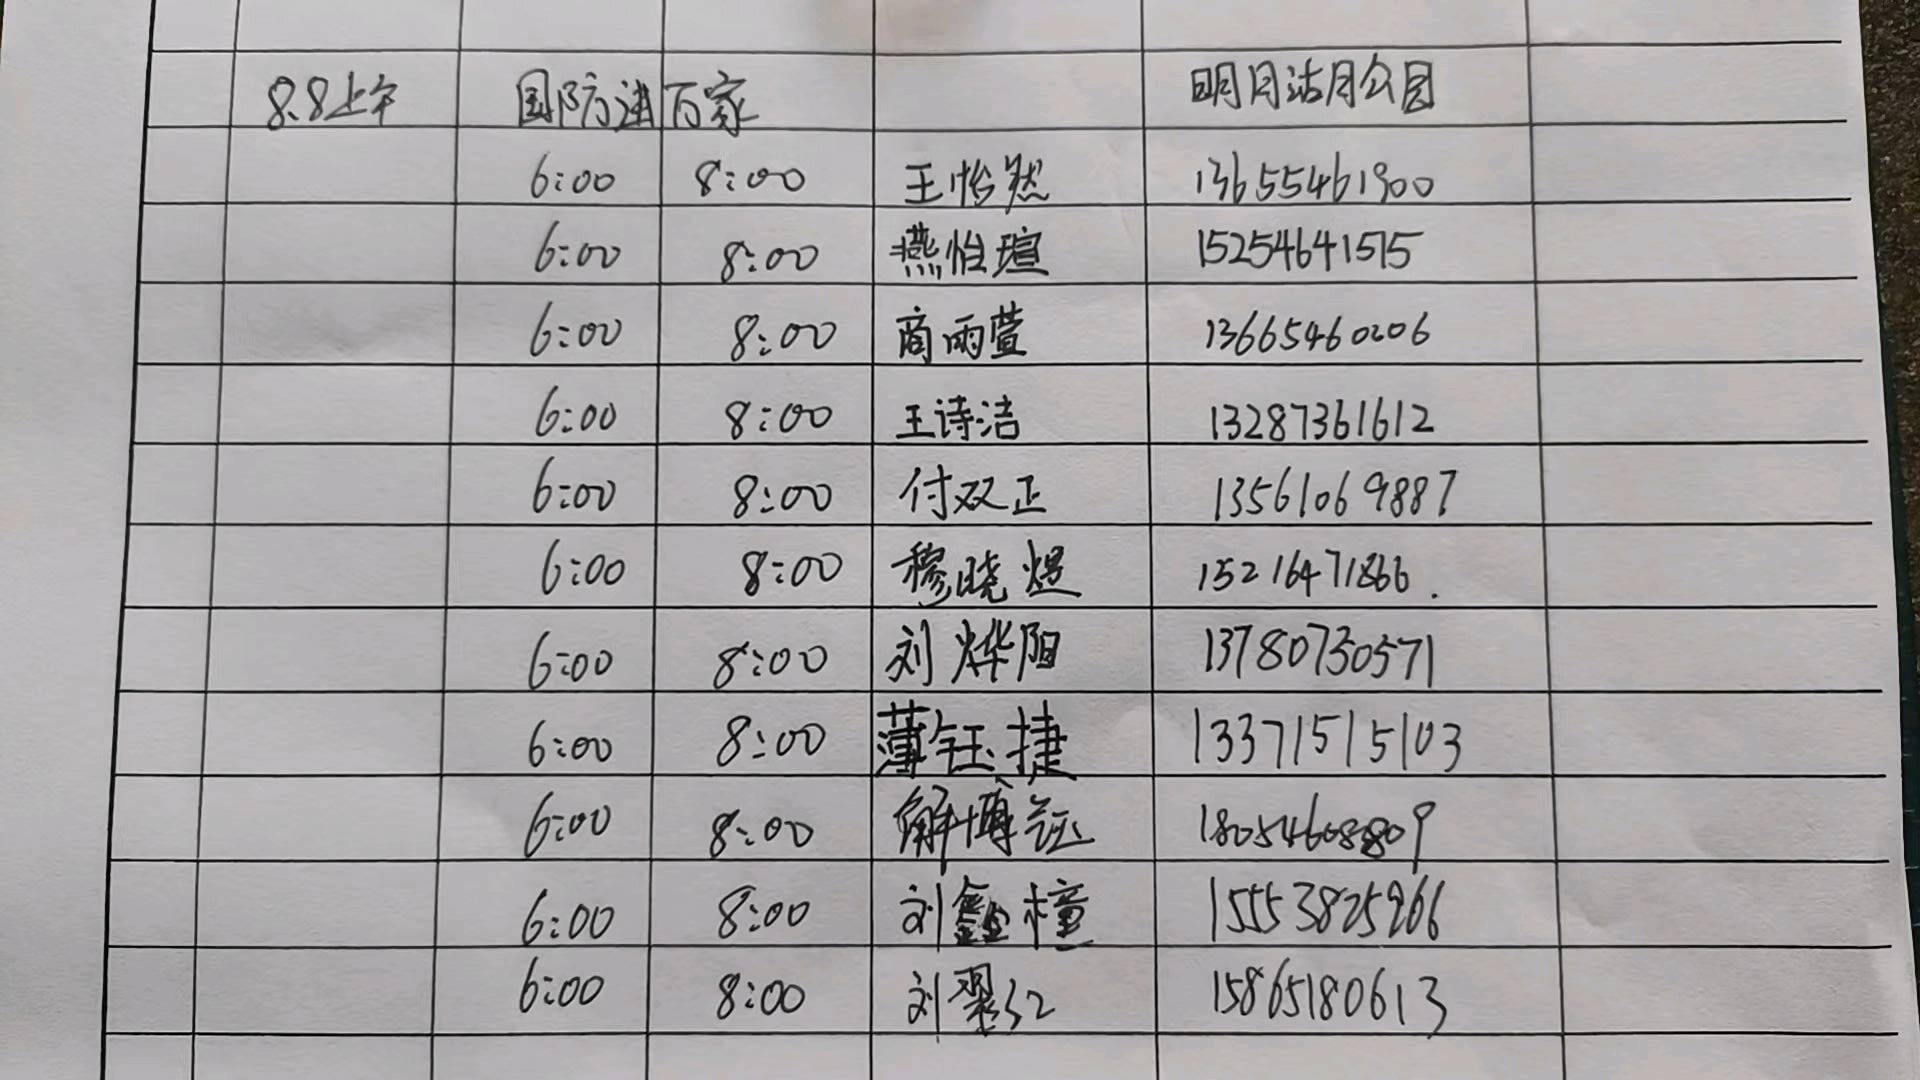 8.8上午 国防进万家 明月沽月公园
6:00 8:00 王怡然 13655461900
6:00 8:00 燕怡瑄 15254641515
6:00 8:00 商雨萱 13665460206
6:00 8:00 王诗洁 13287361612
6:00 8:00 付双正 13561069887
6:00 8:00 穆晓煜 15216471866.
6:00 8:00 刘烨阳 13780730571
6:00 8:00 薄钰捷 13371515103
6:00 8:00 解博钰 18054608809
6:00 8:00 刘鑫橦 15553825266
6:00 8:00 刘 15865180613